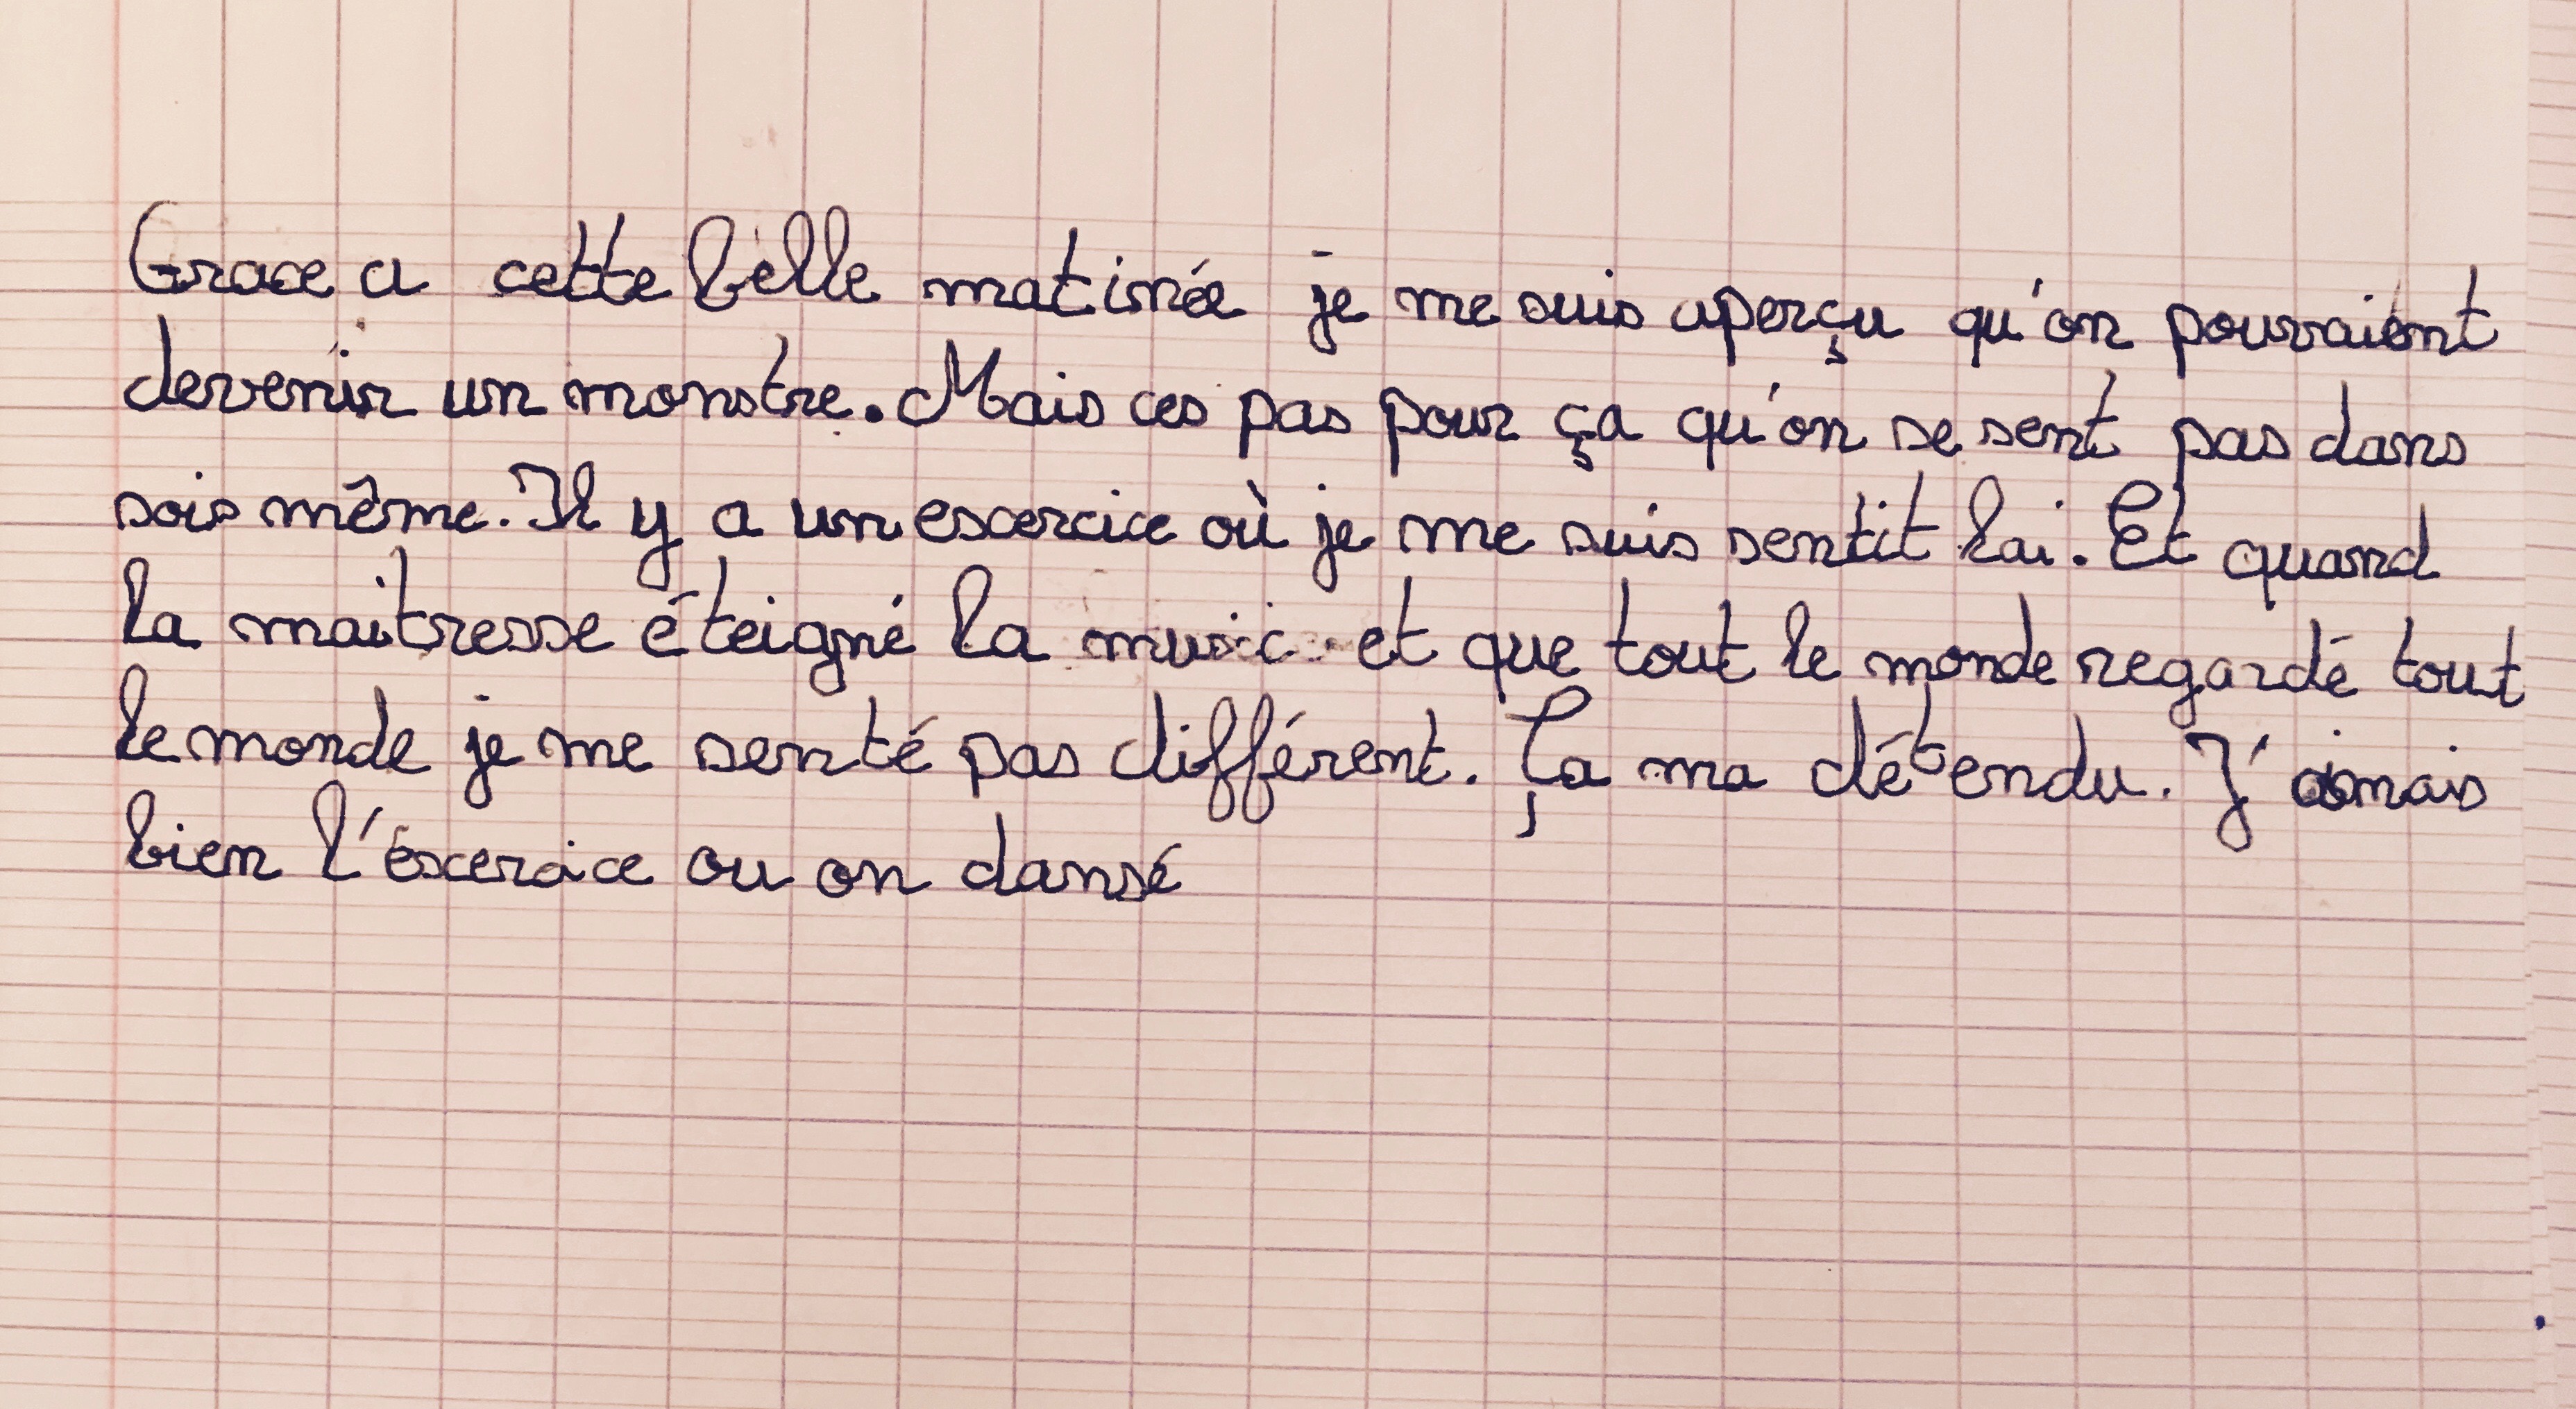 Grace a cette belle matinée je me suis aperçu qu'on pouvraient
devenir un monstre. Mais ces pas pour ça qu'on se sent pas dans
sois même. Il y a un excercice où je me suis sentit lai. Et quand
la maitresse éteigné la music et que tout le monde regardé tout
le monde je me senté pas différent. Ça ma détendu. J'aimais
bien l'éxcercice ou on dansé